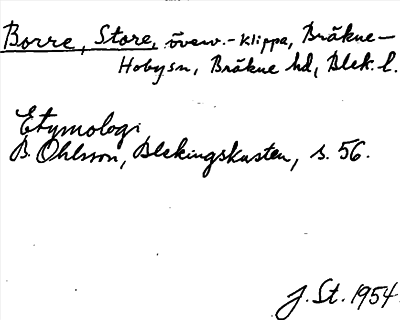 Borre, Store, överv.-klippa, Bräkne-
Hobysn, Bräkne hd, Blek. l.
Etymologi
B. Ohlsson, Blekingskusten, s. 56.
J. St. 1954